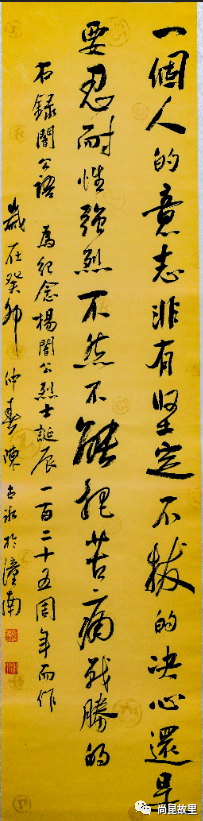 一個人的意志非有坚定不拔的决心還早
要忍耐性強烈不然不能把苦痛战勝的
右録闇公語 為紀念楊闇公烈士誕辰一百二十五周年而作
歲在癸卯仲春陳 於潼南
尚昆故里